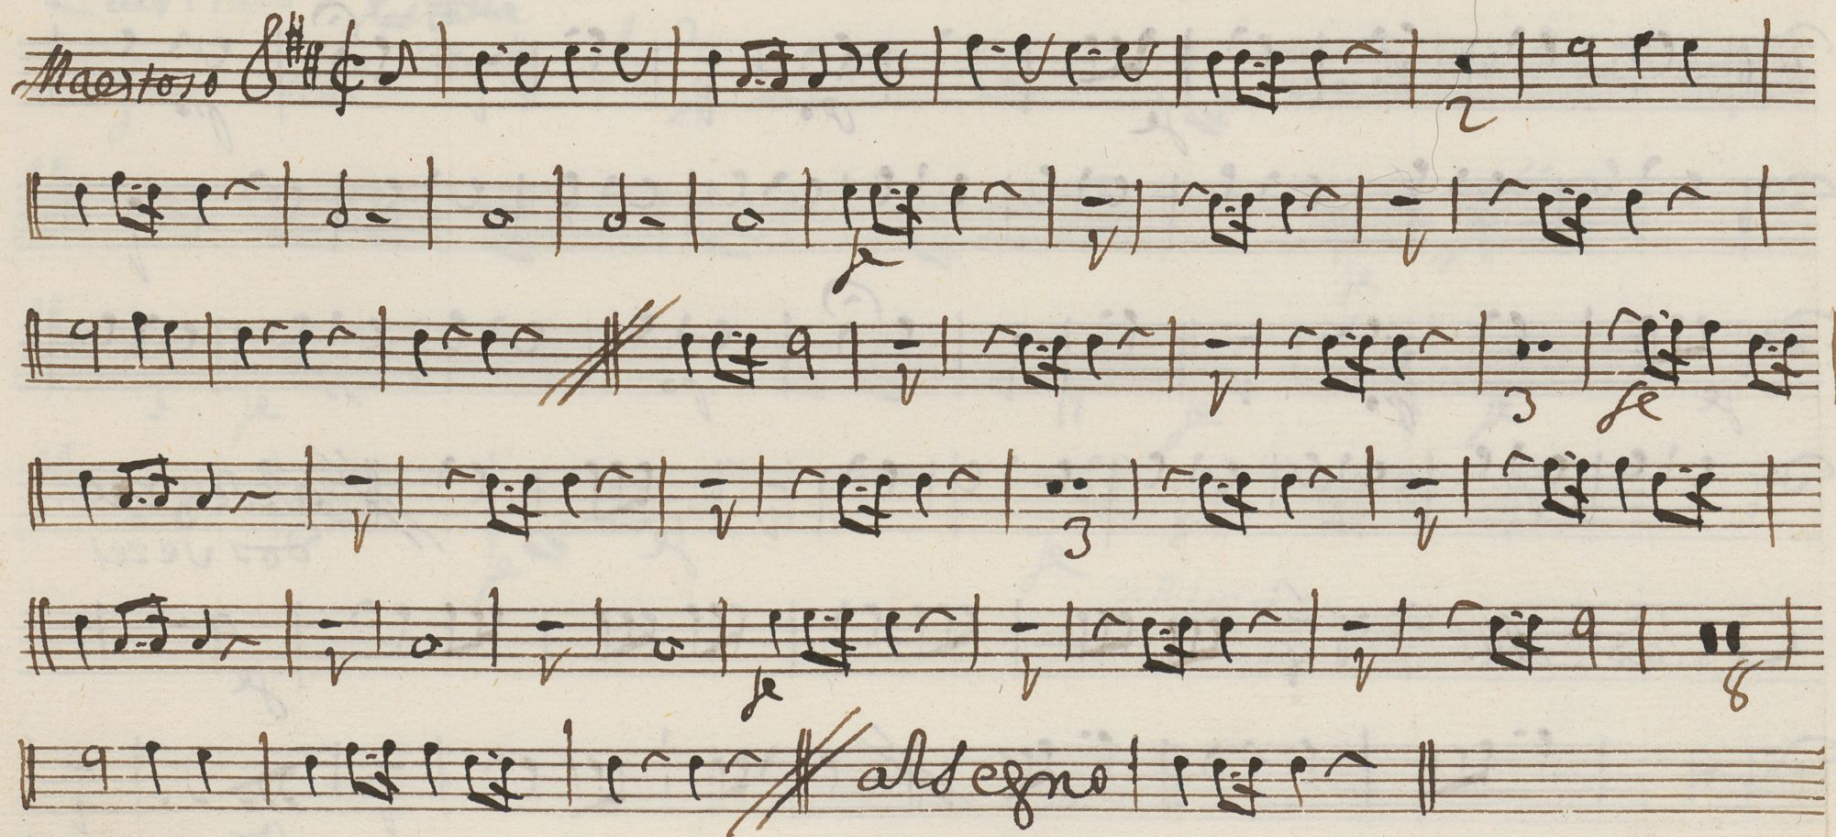 Maestoso
2
fe 1 1
1 1 3 fe
1 1 3 1
1 1 fe 1 1 8
al segno